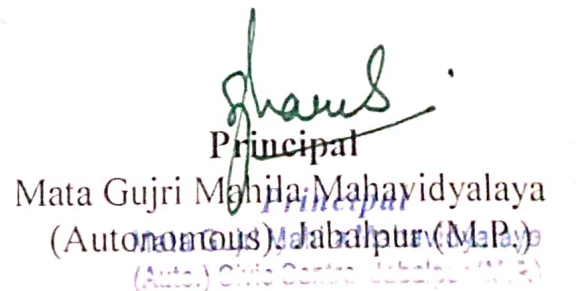 Principal
Mata Gujri Mahila Mahavidyalaya
(Autonomous), Jabalpur (M.P.)
Principal
(Auto.) Civic Centre, Jabalpur (M.P.)